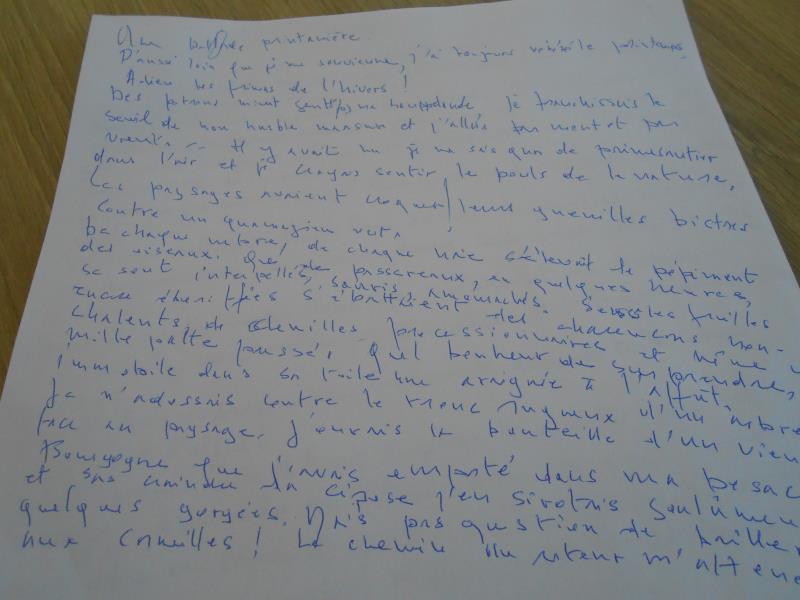 Une printanière.
D'aussi loin que je me souvienne, j'ai toujours le printemps.
Adieu les frimas de l'hiver !
Des je franchissais le
seuil de mon humble et j'allais par mont et par
Il y avait un je ne sais quoi de primesautier
dans l'air et je croyais sentir le pouls de la nature,
Les paysages avaient troqué leurs guenilles bistres
contre un vert,
De chaque arbre, de chaque s'élevait le pépiment
des oiseaux. Que de passereaux, en quelques heures,
se sont interpellés, souris, amourachés. Sous les feuilles
encore s'ébattaient des charençons non-
chalents, de chenilles processionnaires et même un
mille patte pressé, quel bonheur de surprendre,
immobile dans sa toile une araignée à l'affût.
Je m'adossais contre le tronc rugueux d'un arbre
face au paysage, j'ouvris la bouteille d'un vieux
Bourgogne que j'avais emporté dans ma besac
et j'en sirotais seulemen
quelques gorgées. Mais pas question de bailler
aux corneilles ! Le chemin du retour m'atten